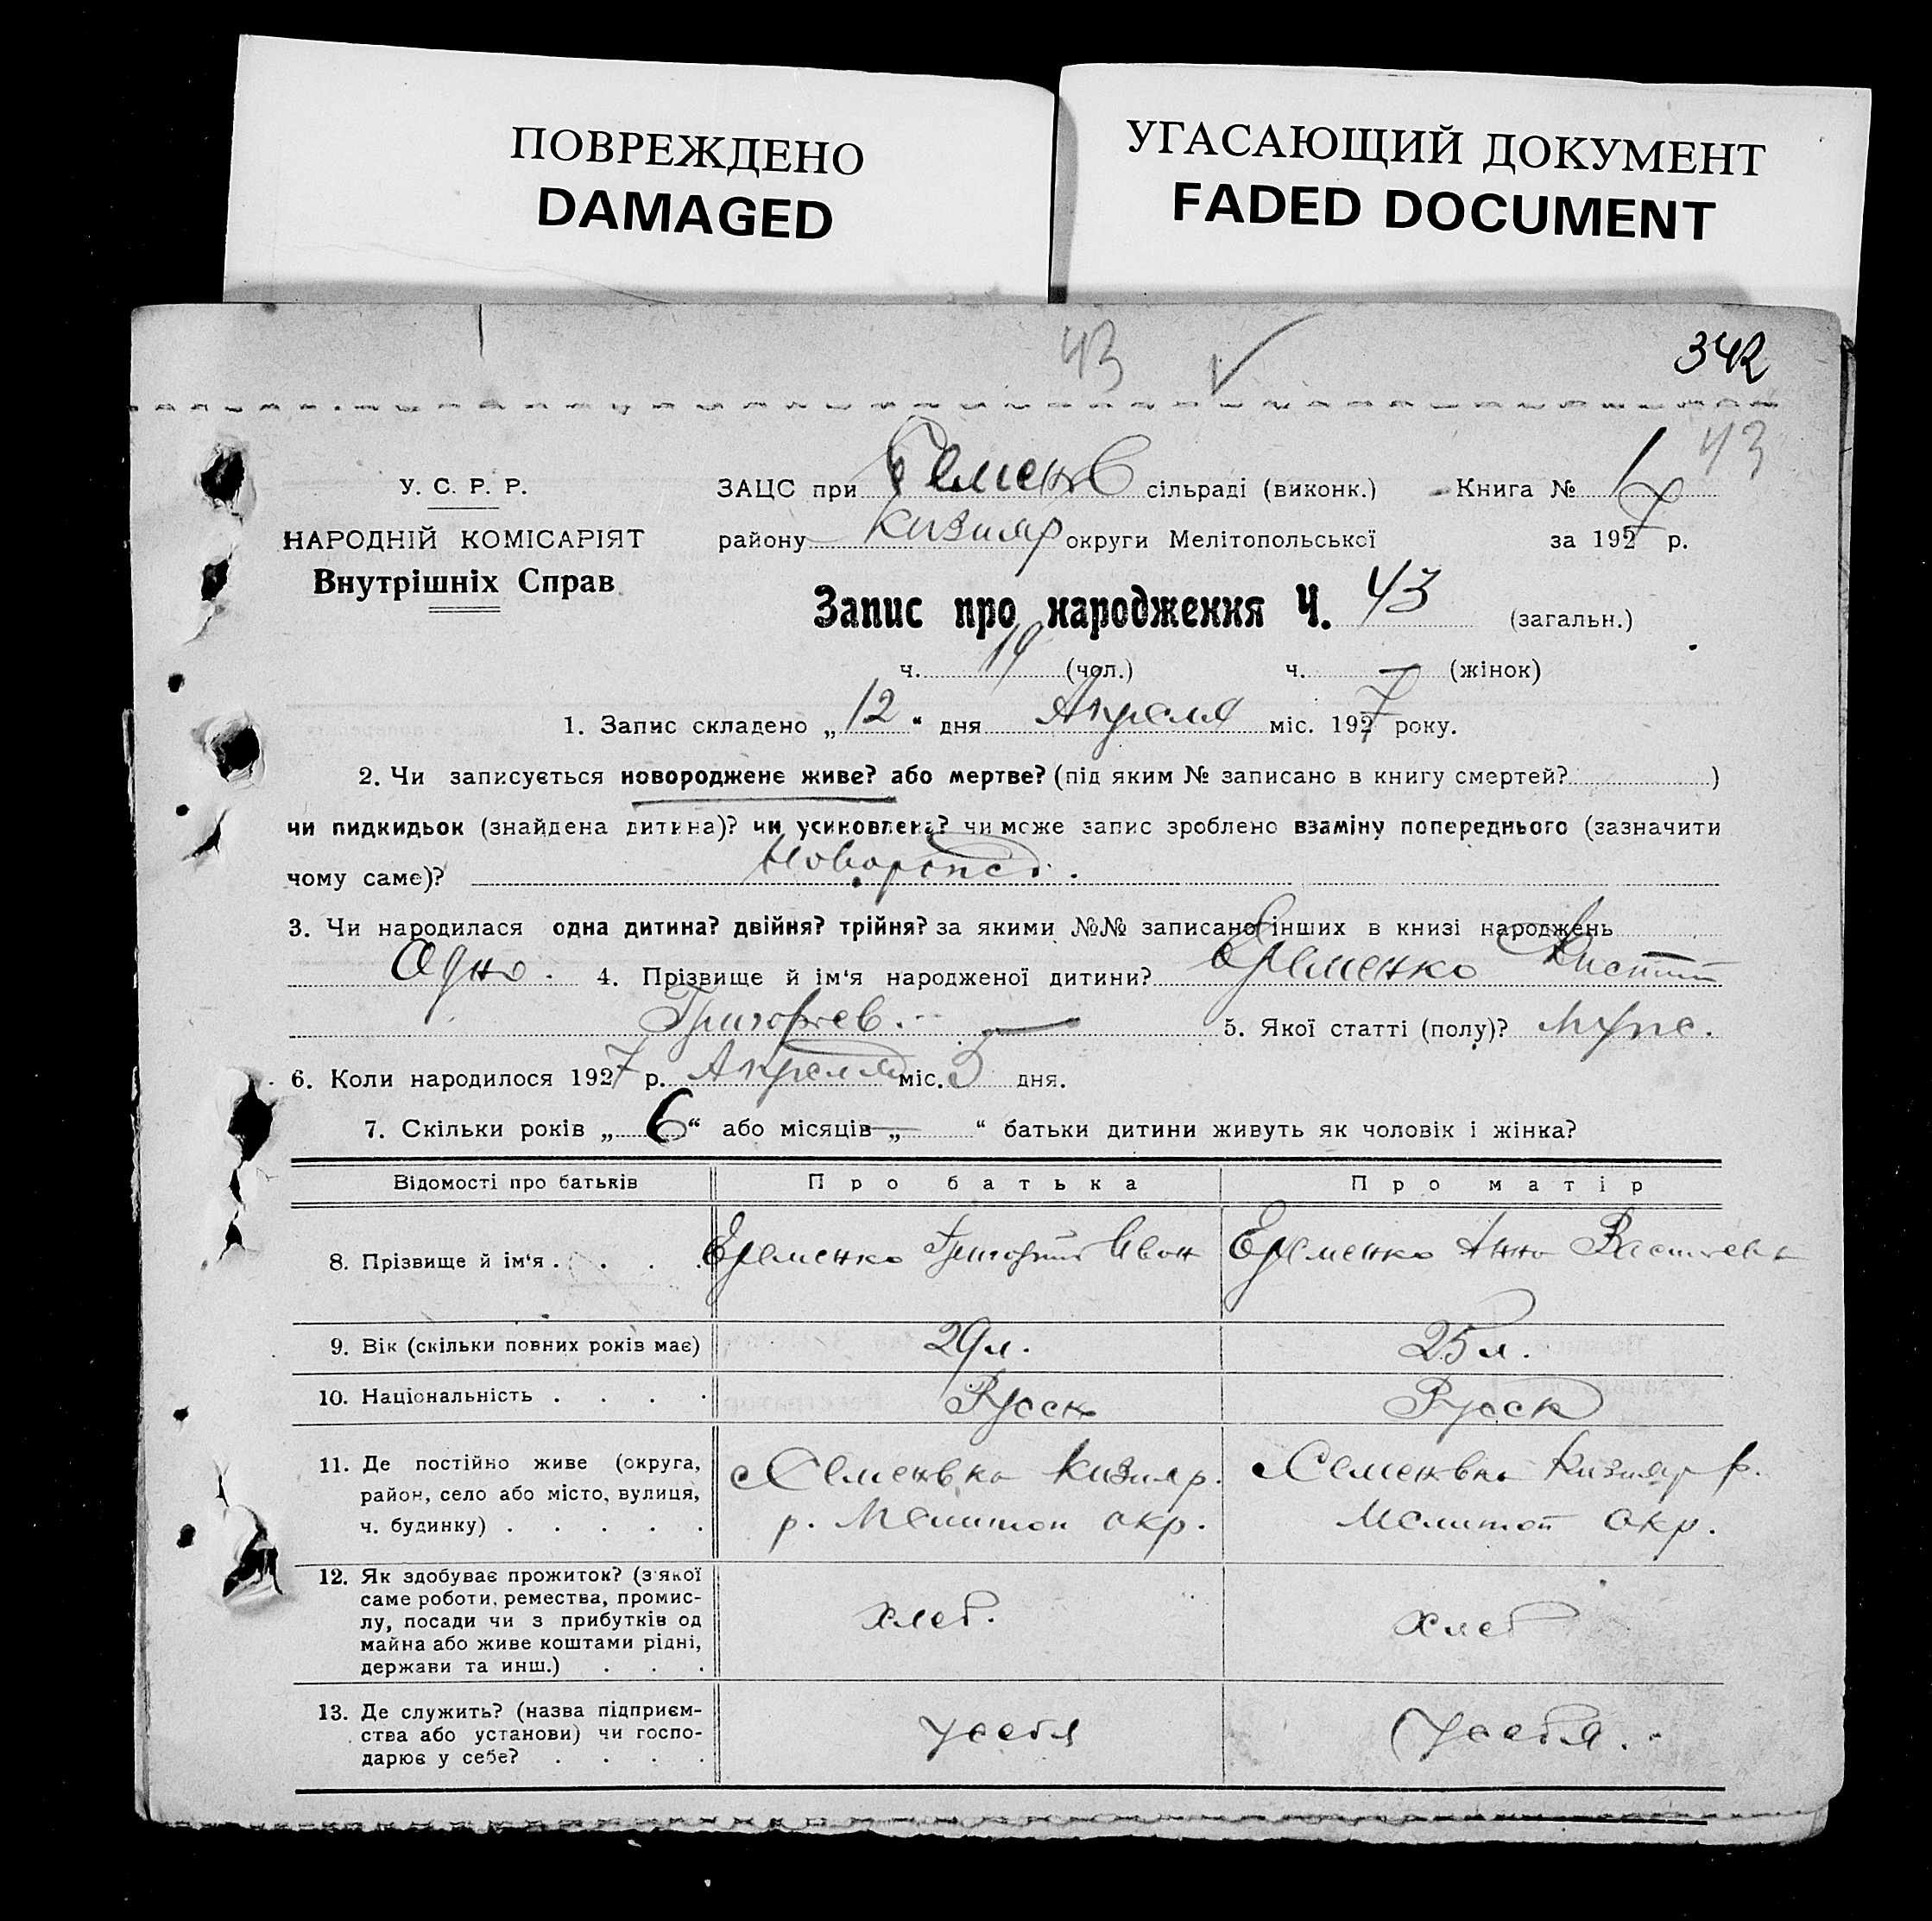 ПОВРЕЖДЕНО
DAMAGED
УГАСАЮЩИЙ ДОКУМЕНТ
FADED DOCUMENT
43
342
43
У. С. Р. Р.
НАРОДНІЙ КОМІСАРІЯТ
Внутрішніх Справ
ЗАЦС при Семенов сільраді (виконк.) Книга № 1
району Кизияр округи Мелітопольської за 1927 р.
Запис про народження Ч. 43 (загальн.)
ч. 19 (чол.) ч. — (жінок)
1. Запис складено „12“ дня Апреля міс. 1927 року.
2. Чи записується новороджене живе? або мертве? (під яким № записано в книгу смертей? )
чи пидкидьок (знайдена дитина)? чи усиновлена? чи може запис зроблено взаміну попереднього (зазначити
чому саме)?
3. Чи народилася одна дитина? двійня? трійня? за якими №№ записано інших в книзі народжень
Одно. 4. Прізвище й ім‘я народженої дитини? Еременко
Григорьев. — 5. Якої статті (полу)? Мужс.
6. Коли народилося 1927 р. Апреля міс. 5 дня.
7. Скільки років „6“ або місяців — „ “ батьки дитини живуть як чоловік і жінка?
Відомості про батьків Про батька Про матір
8. Прізвище й ім‘я . . . . Еременко Григорий Иван Еременко Анна
9. Вік (скільки повних років має) 29 л. 25 л.
10. Національність . . . . Русск Русск
11. Де постійно живе (округа,
район, село або місто, вулиця,
ч. будинку) . . . . .
с Семеновка Кизияр.
р. Мелитоп окр.
с Семеновка Кизияр р.
Мелитоп окр.
12. Як здобуває прожиток? (з'якої
саме роботи, ремества, промис-
лу, посади чи з прибутків од
майна або живе коштами рідні,
держави та инш.) . . .
хлеб. хлеб
13. Де служить? (назва підприєм-
ства або установи) чи госпо-
дарює у себе? . . . .
у себя у себя.